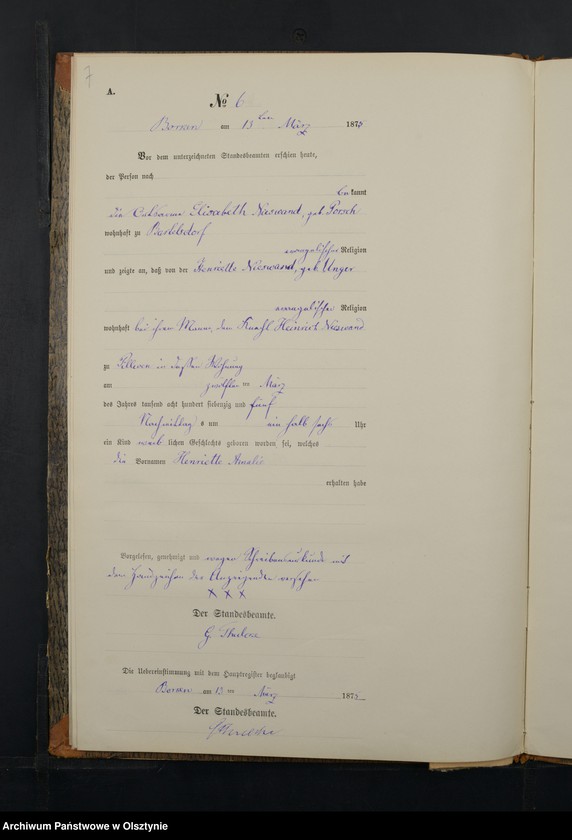 7
A.
№ 6
am 13ten März 1875
Vor dem unterzeichneten Standesbeamten erschien heute,
der Person nach
bekannt
die Elisabeth Nieswand, geb. Porsch
wohnhaft zu
evangelischer Religion
und zeigte an, daß von der Henriette Nieswand, geb. Unger
evangelischer Religion
wohnhaft bei ihrem Manne, dem Knecht Heinrich Nieswand
zu in dessen Wohnung
am zwölften ten März
des Jahres tausend acht hundert siebenzig und fünf
Nachmittags um ein halb sechs Uhr
ein Kind weiblichen Geschlechts geboren worden sei, welches
die Vornamen Henriette Amalie
erhalten habe
Vorgelesen, genehmigt und wegen Schreibensunkunde mit
dem Handzeichen des Anzeigenden versehen
X X X
Der Standesbeamte.
G.
Die Uebereinstimmung mit dem Hauptregister beglaubigt
am 13 ten März 1875
Der Standesbeamte.
Archiwum Państwowe w Olsztynie